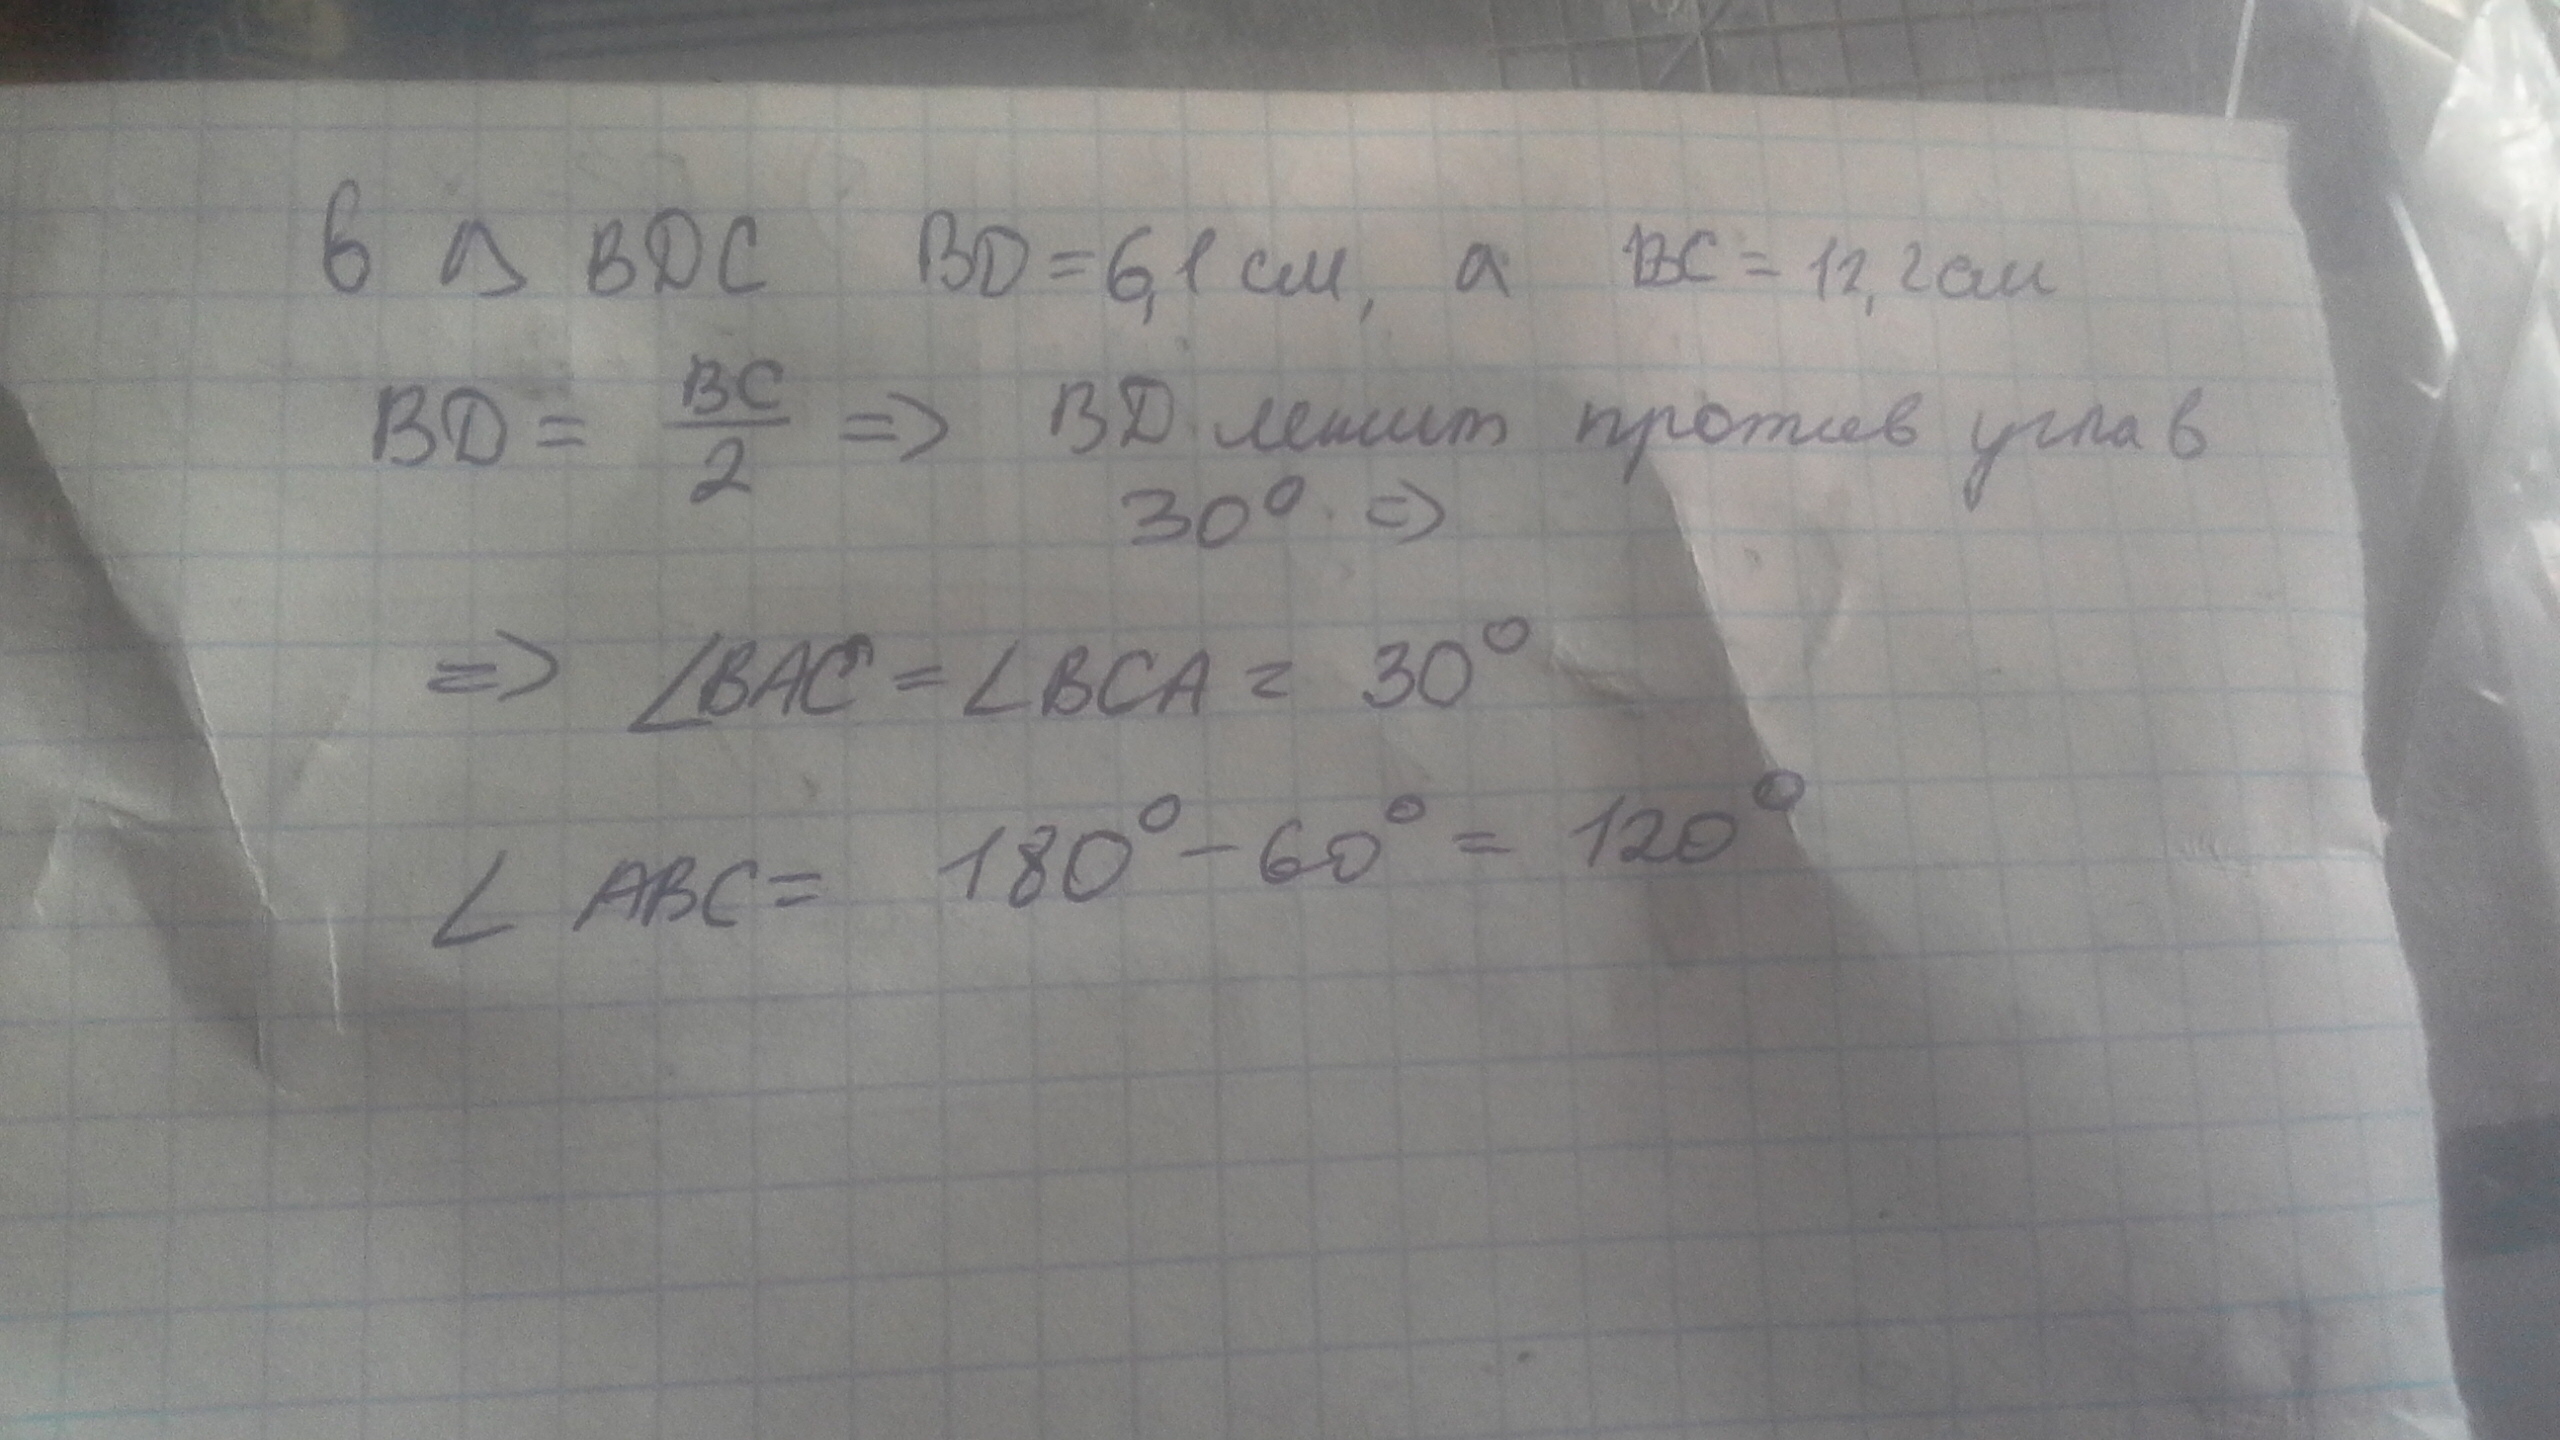 в △ BDC BD = 6,1 см, а BC = 12,2 см
BD = BC/2 => BD лежит против угла в
30° =>
=> ∠BAC = ∠BCA = 30°
∠ ABC = 180° - 60° = 120°